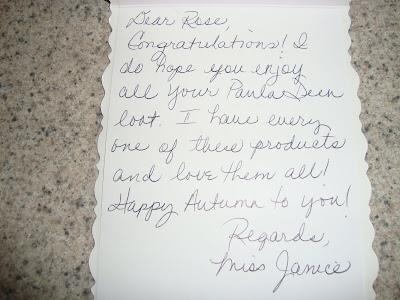 Dear Rose,
Congratulations! I
do hope you enjoy
all your Paula Deen
loot. I have every
one of these products
and love them all!
Happy Autumn to you!
Regards,
Miss Janice